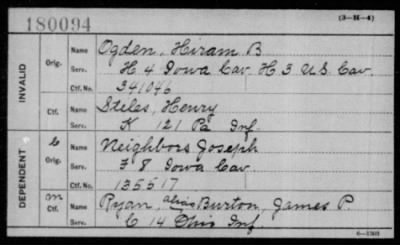 180094
(3-H-4)
INVALID
Orig.
Name Ogden, Hiram B
Serv. H 4 Iowa Cav. H 3 U.S. Cav.
Ctf. No. 341046
Ctf.
Name Stiles, Henry
Serv. K 121 Pa Inf.
DEPENDENT
Orig.
Name Neighbors Joseph
Serv. F 8 Iowa Cav
Ctf. No. 135517
m
Ctf.
Name Ryan, alias Burton, James P.
Serv. C 14 Ohio Inf.
6-1501